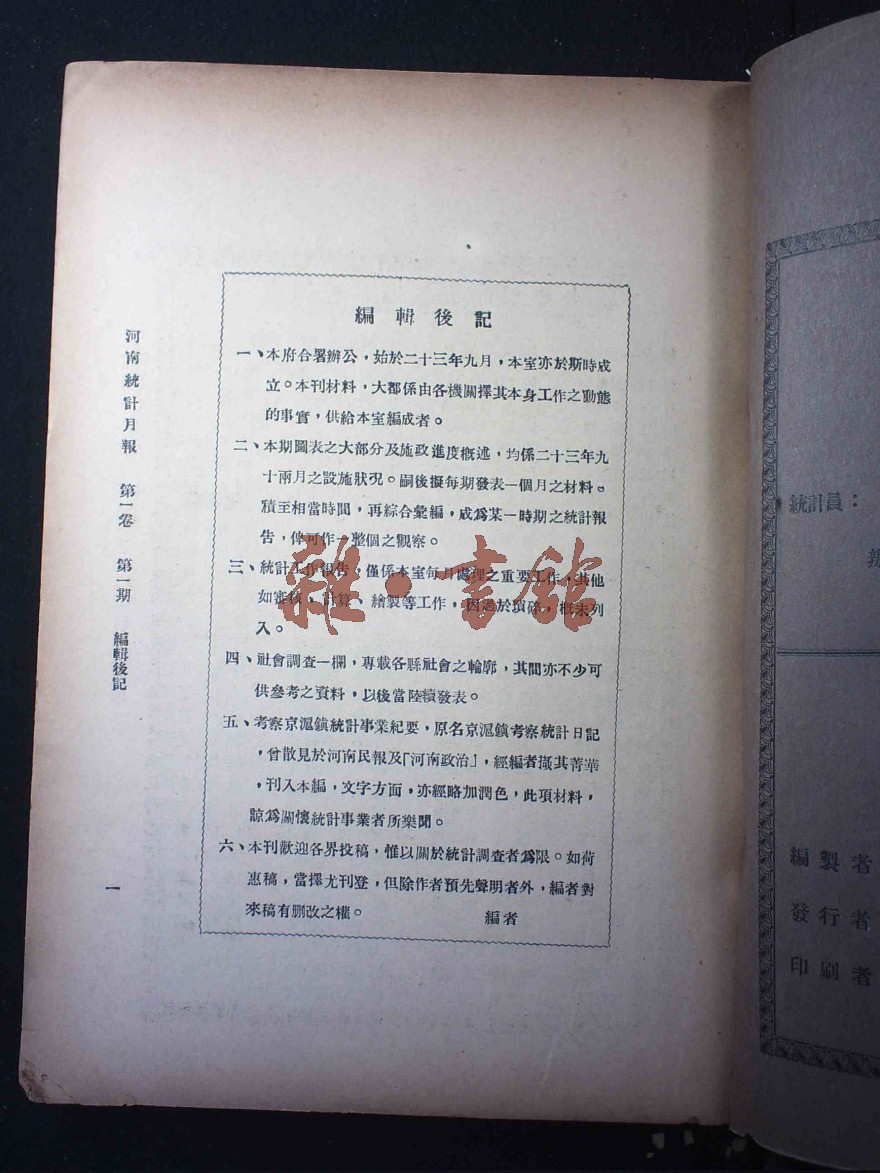 編輯後記
一、本府合署辦公，始於二十三年九月，本室亦於斯時成
立。本刊材料，大都係由各機關擇其本身工作之動態
的事實，供給本室編成者。
二、本期圖表之大部分及施政進度概述，均係二十三年九
十兩月之設施狀况。嗣後擬每期發表一個月之材料。
積至相當時間，再綜合彙編，成爲某一時期之統計報
告，俾可作一整個之觀察。
三、統計工作報告，僅係本室每月處理之重要工作，其他
如審核、計算、繪製等工作，因過於瑣碎，概未列
入。
四、社會調查一欄，專載各縣社會之輪廓，其間亦不少可
供參考之資料，以後當陸續發表。
五、考察京滬鎮統計事業紀要，原名京滬鎮考察統計日記
，曾散見於河南民報及「河南政治」，經編者擷其菁華
，刊入本編，文字方面，亦經略加潤色，此項材料，
諒爲關懷統計事業者所樂聞。
六、本刊歡迎各界投稿，惟以關於統計調查者爲限。如荷
惠稿，當擇尤刊登，但除作者預先聲明者外，編者對
來稿有删改之權。
編者
河南統計月報 第一卷 第一期 編輯後記
一
統計員：
編製者
發行者
印刷者
雜·書館